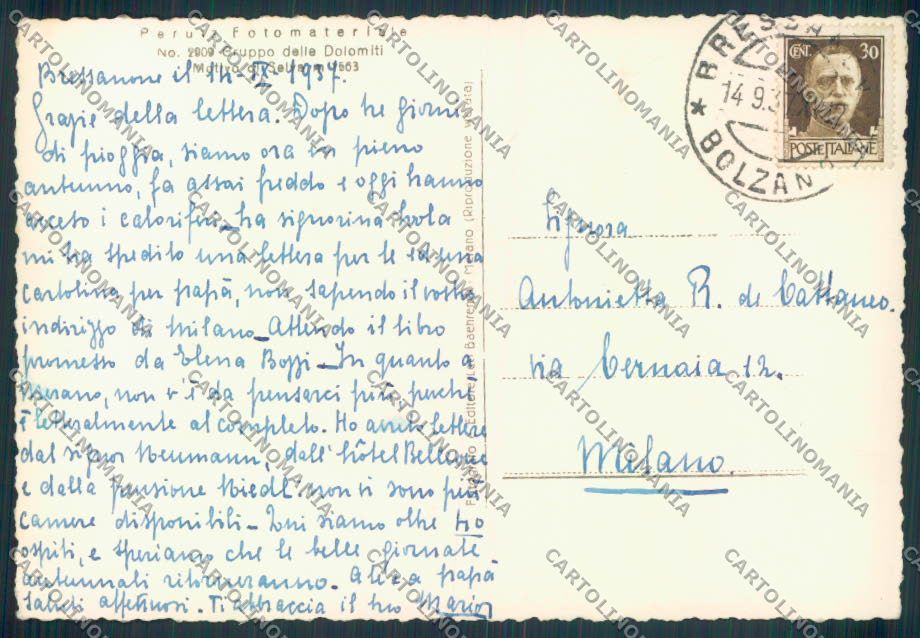 Perutz Fotomateriale
No. 2909 Gruppo delle Dolomiti
Motivo di Selva m 1563
Bressanone il 14-IX-1937.
Grazie della lettera. Dopo tre giorni
di pioggia, siamo ora in pieno
autunno, fa assai freddo e oggi hanno
acceso i caloriferi. La signorina
mi ha spedito una lettera per te ed una
cartolina per papà, non sapendo il vostro
indirizzo di Milano. Attendo il libro
promesso da Elena Bozzi. In quanto a
Merano, non v'è da pensarci più, perchè
è letteralmente al completo. Ho avuto lettere
dal signor Neumann, dall'hôtel Bellevue
e dalla pensione Riedl: non vi sono più
camere disponibili. Qui siamo oltre
ospiti, e speriamo che le belle giornate
autunnali ritorneranno. A te e a papà
saluti affettuosi. Ti abbraccia il tuo Mario
Editore Baehrendt Merano (Riproduzione vietata)
BRESSANONE
14.9.37
* BOLZANO
CENT. 30
POSTE ITALIANE
Signora
Antonietta R. de Cattaneo.
via Cernaia 12.
Milano.
CARTOLINOMANIA